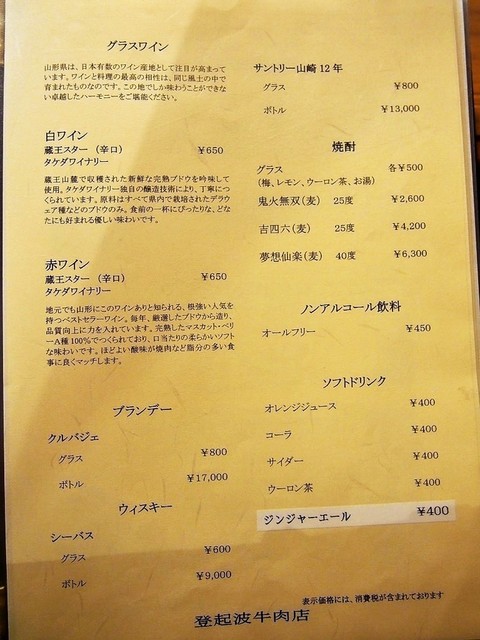 グラスワイン
山形県は、日本有数のワイン産地として注目が高まって
います。ワインと料理の最高の相性は、同じ風土の中で
育まれたものなのです。この地でしか味わうことができな
い卓越したハーモニーをご堪能ください。
白ワイン
蔵王スター（辛口） ¥650
タケダワイナリー
蔵王山麓で収穫された新鮮な完熟ブドウを吟味して
使用。タケダワイナリー独自の醸造技術により、丁寧につ
くられています。原料はすべて県内で栽培されたデラウ
ェア種などのブドウのみ。食前の一杯にぴったりな、どな
たにも好まれる優しい味わいです。
赤ワイン
蔵王スター（辛口） ¥650
タケダワイナリー
地元でも山形にこのワインありと知られる、根強い人気を
持つベストセラーワイン。毎年、厳選したブドウから造り、
品質向上に力を入れています。完熟したマスカット・ベリ
ーA種100%でつくられており、口当たりの柔らかいソフト
な味わいです。ほどよい酸味が焼肉など脂分の多い食
事に良くマッチします。
ブランデー
クルバジェ
グラス ¥800
ボトル ¥17,000
ウィスキー
シーバス
グラス ¥600
ボトル ¥9,000
サントリー山崎12年
グラス ¥800
ボトル ¥13,000
焼酎
グラス 各¥500
（梅、レモン、ウーロン茶、お湯）
鬼火無双（麦） 25度 ¥2,600
吉四六（麦） 25度 ¥4,200
夢想仙楽（麦） 40度 ¥6,300
ノンアルコール飲料
オールフリー ¥450
ソフトドリンク
オレンジジュース ¥400
コーラ ¥400
サイダー ¥400
ウーロン茶 ¥400
ジンジャーエール ¥400
表示価格には、消費税が含まれております
登起波牛肉店